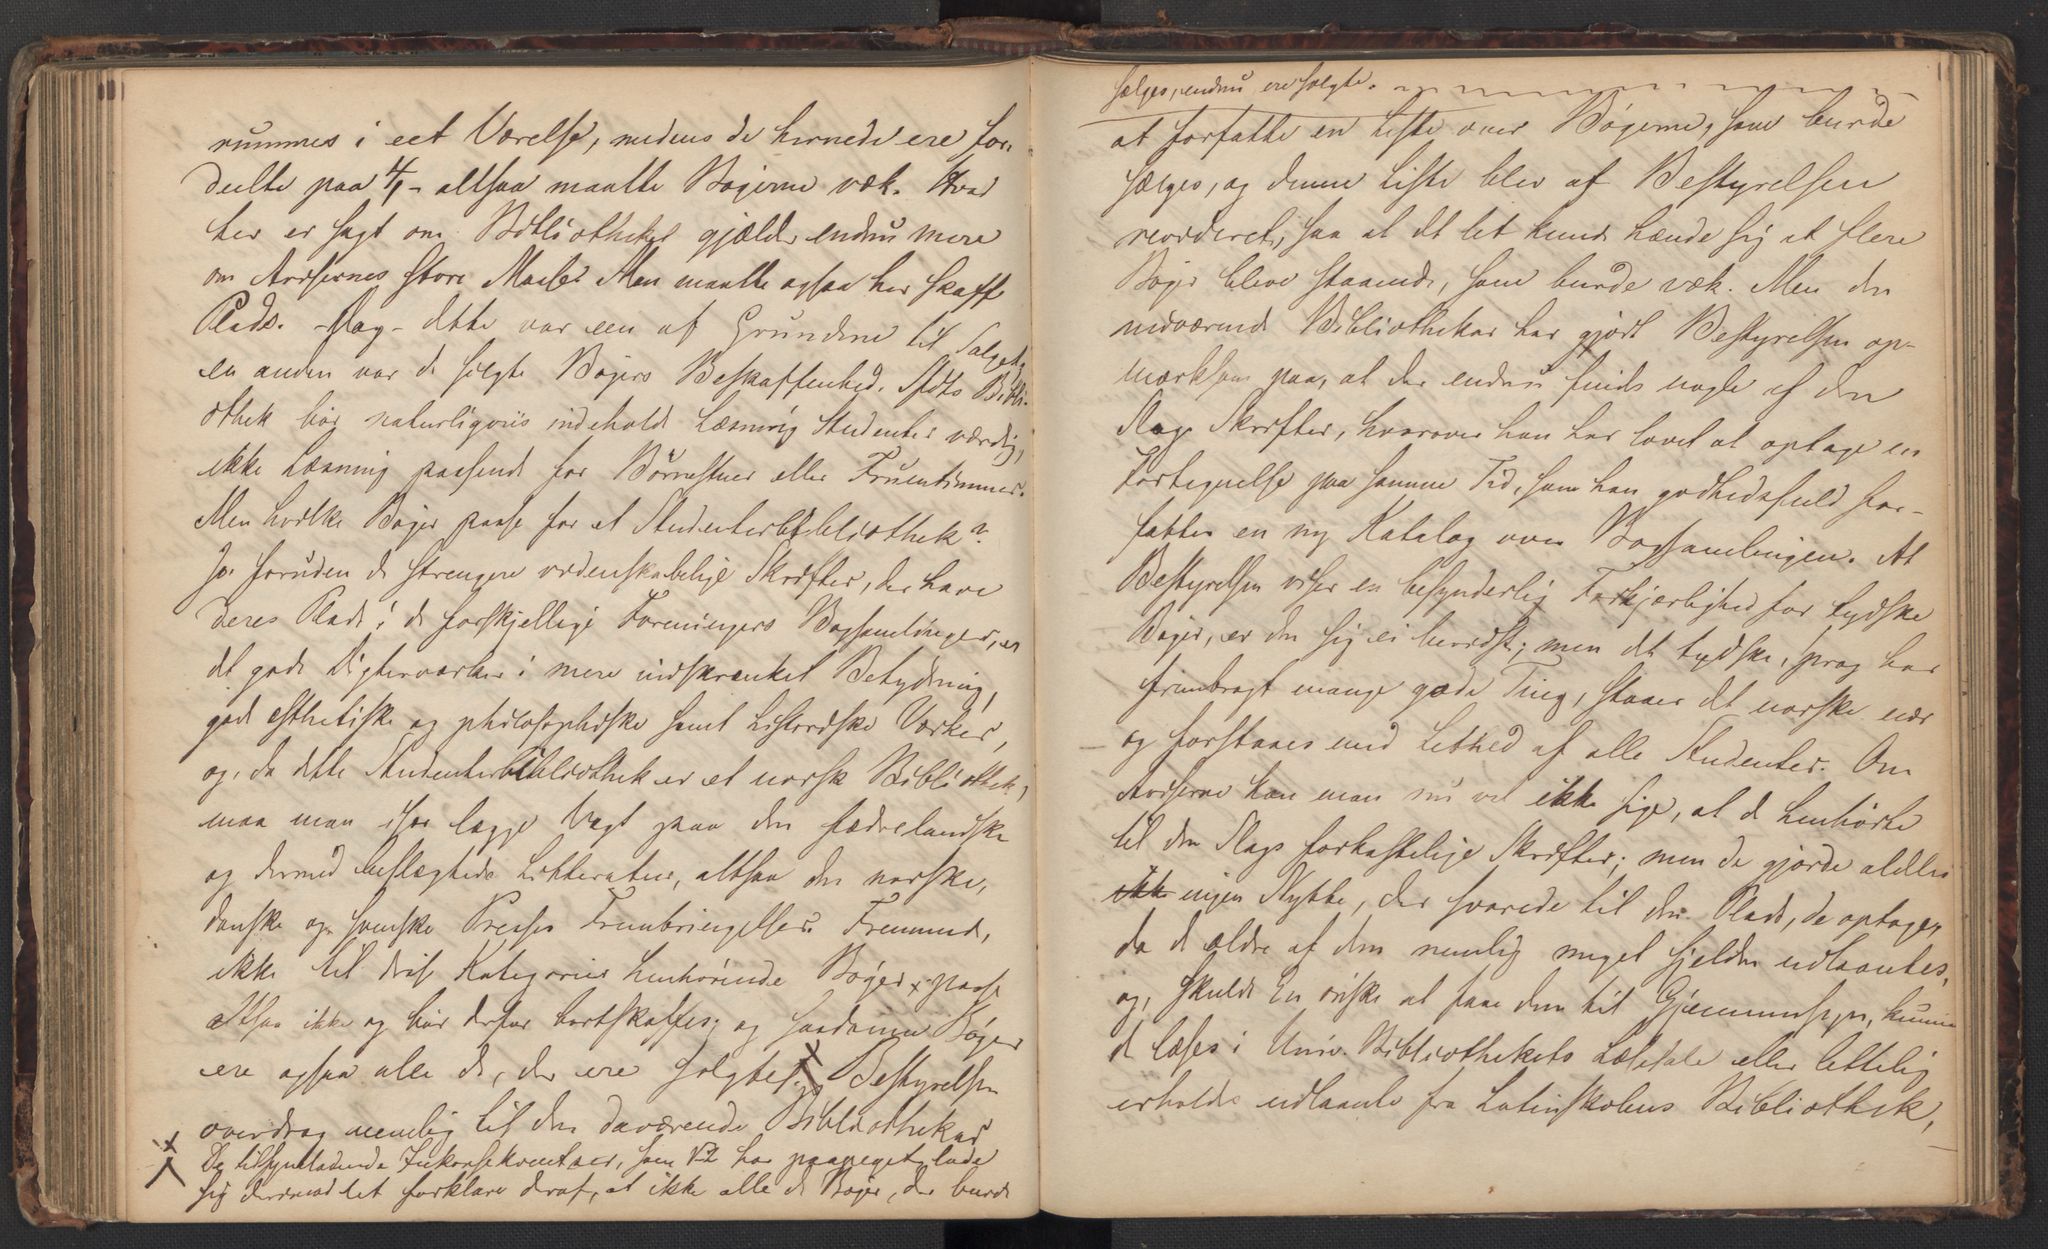 rummes i eet Værelse, medens de hernede ere for-
deelte paa 4/, - altsaa maatte Bøgerne væk. Hvad
her er sagt om Bibliotheket gjælder endnu mere
om Avisernes store Masse. Man maatte ogsaa her skaffe
Plads. - Dog - dette var een af Grundene til Salget,
en anden var de solgte Bøgers Beskaffenhed. Sdts Bibli-
othek bør naturligviis indeholde Læsning Studenter værdig,
ikke Læsning passende for Børnestuer eller Fruentimmer.
Men hvilke Bøger passe for et Studenterbibliothek?
Jo foruden de strengere videnskabelige Skrifter, der have
deres Plads i de forskjellige Foreningers Bogsamlinger, er
det gode Digterværker i mere indskrænket Betydning,
gode æsthetiske og philosophiske samt historiske Værker,
og, da dette Studenterbibliothek er et norsk Bibliothek,
maa man især lægge Vægt paa den fædrelandske
og dermed beslægtede Litteratur, altsaa den norske,
danske og svenske Presses Frembringelser. Fremmede,
ikke til disse Kategorier henhørende Bøger passe
altsaa ikke og bør derfor bortskaffes; og saadanne Bøger
ere ogsaa alle de, der ere solgte. × Bestyrelsen
overdrog nemlig til den daværende Bibliothekar
× De tilsyneladende Inkonsekventser, som har paapeget, lade
sig derimod let forklare deraf, at ikke alle de Bøger, der burde
sælges, endnu ere solgte.
at forfatte en Liste over Bøgerne, som burde
sælges, og denne Liste blev af Bestyrelsen
revideret, saa at det let kunde hænde sig at flere
Bøger bleve staaende, som burde væk. Men den
nuværende Bibliothekar har gjort Bestyrelsen op-
mærksom paa, at der endnu findes nogle af den
Slags Skrifter, hvorover han har lovet at optage en
Fortegnelse paa samme Tid, som han godhedsfuld for-
fatter en ny Katalog over Bogsamlingen. At
Bestyrelsen viser en besynderlig Forkjærlighed for tydske
Bøger, er den sig ei bevidst; men det tydske Sprog har
frembragt mange gode Ting, staaer det norske nær
og forstaaes med Lethed af alle Studenter. Om
Aviserne kan man nu vel ikke sige, at de henhørte
til den Slags forkastelige Skrifter; men de gjorde aldeles
ikke ingen Nytte, der svarede til den Plads, de optoge,
da de ældre af dem nemlig meget sjelden udlaantes,
og, skulde En ønske at faae dem til Gjennemsyn, kunne
de læses i Univ. Bibliothekets Læsesale eller lettelig
erholdes udlaante fra Latinskolens Bibliothek,